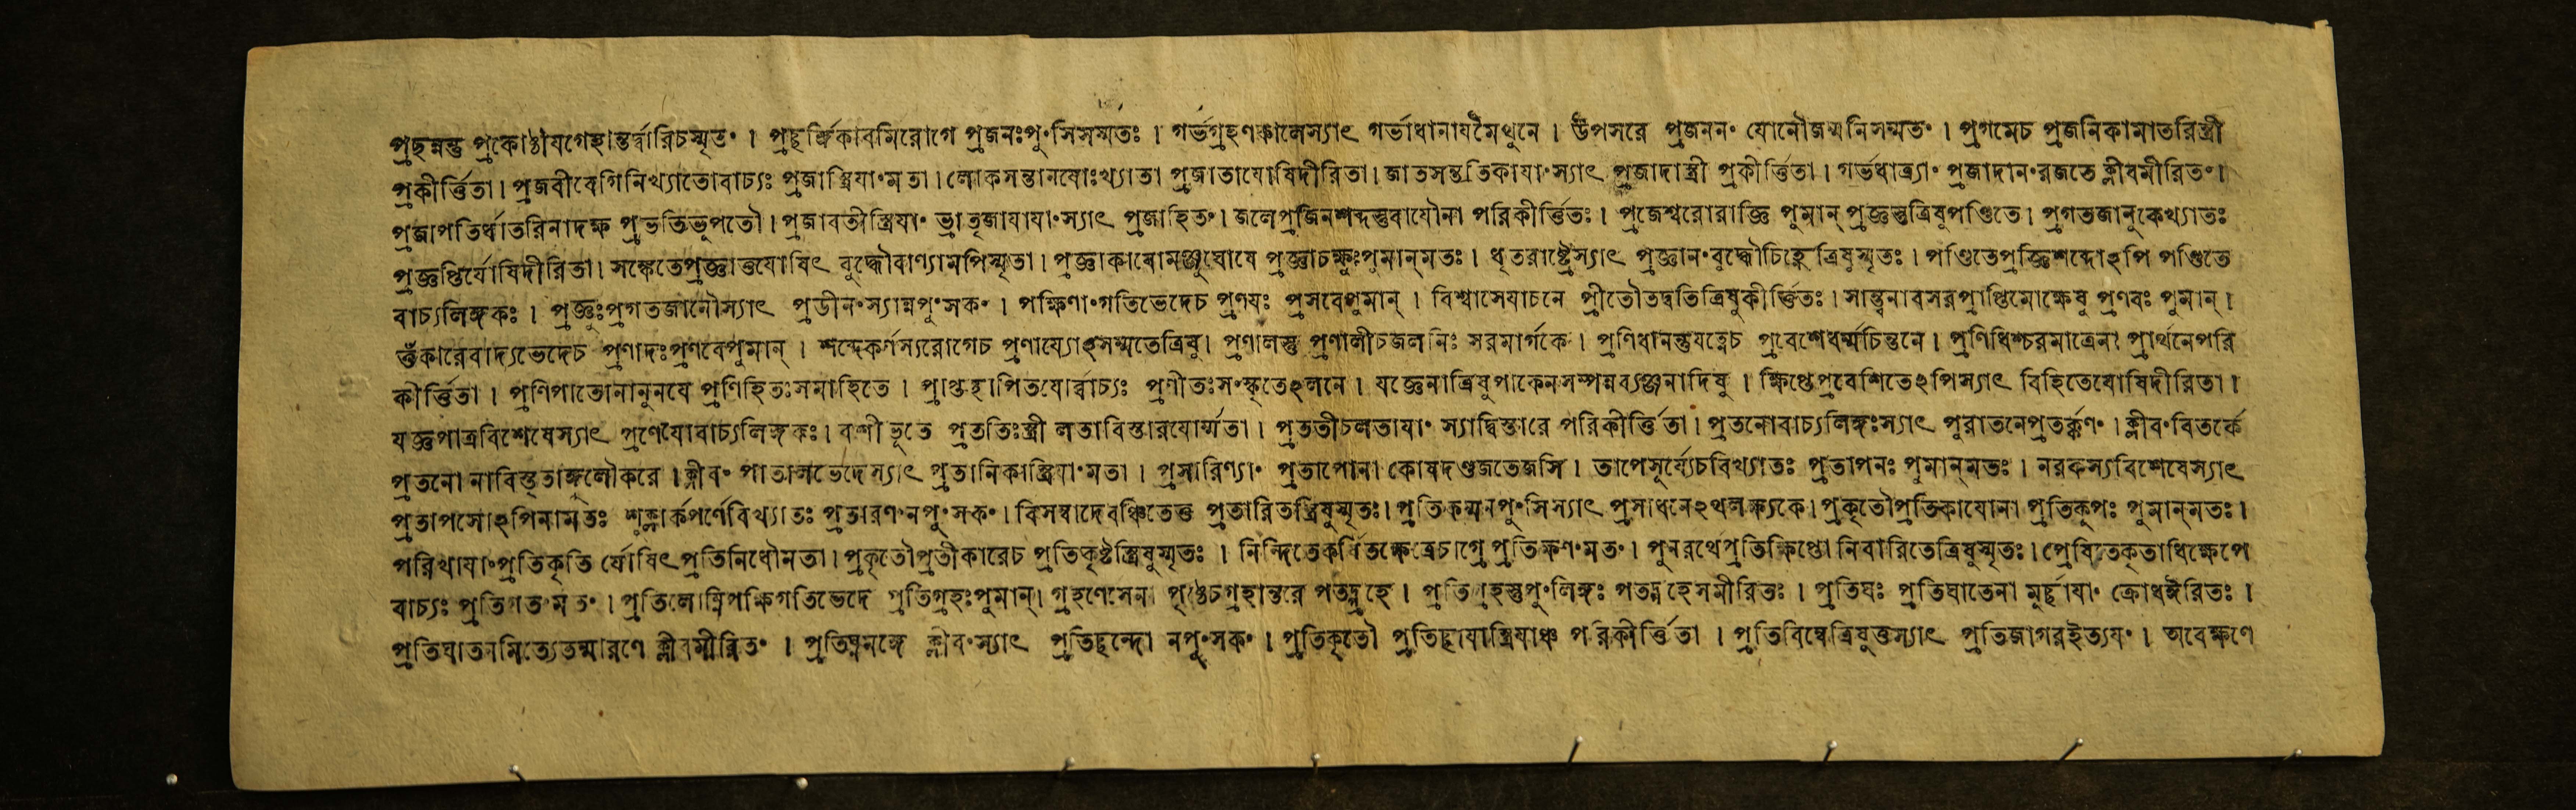 প্রছন্নন্তু প্রকোষ্ঠীযগেহান্তর্দ্বারিচস্মৃতং । প্রছর্দ্দিকাবমিরোগে প্রজনঃপুংসিসম্মতঃ । গর্ভগ্রহণকালেস্যাৎ গর্ভাধানাযমৈথুনে । উপসরে প্রজননং যোনৌজন্মনিসম্মতং । প্রগমেচ প্রজনিকামাতরিস্ত্রী
প্রকীর্ত্তিতা । প্রজবীবেগিনিখ্যাতোবাচ্যঃ প্রজাস্ত্রিযাংমতা । লোকসন্তানযোঃখ্যাতা প্রজাতাযোষিদীরিতা । জাতসন্ততিকাযাংস্যাৎ প্রজাদাস্ত্রী প্রকীর্ত্তিতা । গর্ভধাত্র্যাং প্রজাদানংরজতে ক্লীবমীরিতং ।
প্রজাপতির্ধাতরিনাদক্ষ প্রভতিভূপতৌ । প্রজাবতীস্ত্রিযাং ভ্রাতৃজাযাযাংস্যাৎ প্রজাহিতং । জলেপ্রজিনশব্দস্তুবাযৌনা পরিকীর্ত্তিতঃ । প্রজেশ্বরোরাজ্ঞি পুমান্ প্রজ্ঞস্তুত্রিষুপণ্ডিতে । প্রগতজানুকেখ্যাতঃ
প্রজ্ঞপ্তির্যোষিদীরিতা । সঙ্কেতেপ্রজ্ঞাত্তযোষিৎ বুদ্ধৌবাণ্যামপিস্মৃতা । প্রজ্ঞাকাযোমঞ্জুঘোষে প্রজ্ঞাচক্ষুঃপুমান্‌মতঃ । ধৃতরাষ্ট্রেস্যাৎ প্রজ্ঞানংবুদ্ধৌচিহ্নেত্রিষুস্মৃতঃ । পণ্ডিতেপ্রজ্ঞিশব্দোঽপি পণ্ডিতে
বাচ্যলিঙ্গকঃ । প্রজ্ঞুঃপ্রগতজানৌস্যাৎ প্রডীনংস্যান্নপুংসকং । পক্ষিণাংগতিভেদেচ প্রণযঃ প্রসবেপুমান্ । বিশ্বাসেযাচনে প্রীতৌতদ্বতিত্রিষুকীর্ত্তিতঃ । সান্ত্বনাবসরপ্রাপ্তিমোক্ষেষু প্রণবঃ পুমান্ ।
ওঁকারেবাদ্যভেদেচ প্রণাদঃপ্রণবেপুমান্ । শব্দেকর্ণস্যরোগেচ প্রণায্যোঽসম্মতেত্রিষু । প্রণালস্তু প্রণালীচজলনিঃ সরমার্গকে । প্রণিধানন্তুযত্নেচ প্রবেশেধর্ম্মচিন্তনে । প্রণিধিশ্চরমাত্রেনা প্রার্থনেপরি
কীর্ত্তিতা । প্রণিপাতোনানুনযে প্রণিহিতঃসমাহিতে । প্রাপ্তস্থাপিতযোর্ব্বাচ্যঃ প্রণীতঃসংস্কৃতেঽলনে । যজ্ঞেনাত্রিষুপাকেনসম্পন্নব্যঞ্জনাদিষু । ক্ষিপ্তেপ্রবেশিতেঽপিস্যাৎ বিহিতেযোষিদীরিতা ।
যজ্ঞপাত্রবিশেষেস্যাৎ প্রণেযোবাচ্যলিঙ্গকঃ । বশীভূতে প্রততিঃস্ত্রী লতাবিস্তারযোর্ম্মতা । প্রততীচলতাযাং স্যাদ্বিস্তারে পরিকীর্ত্তিতা । প্রতনোবাচ্যলিঙ্গঃস্যাৎ পুরাতনেপ্রতর্ক্কণং । ক্লীবংবিতর্কে
প্রতনো নাবিস্তৃতাঙ্গুলৌকরে । ক্লীবং পাতালভেদেস্যাৎ প্রতানিকাস্ত্রিযাংমতা । প্রসারিণ্যাং প্রতাপোনা কোষদণ্ডজতেজসি । তাপেসূর্য্যেচবিখ্যাতঃ প্রতাপনঃ পুমান্‌মতঃ । নরকস্যবিশেষেস্যাৎ
প্রতাপসোঽপিনামতঃ শুক্লার্কপর্ণেবিখ্যাতঃ প্রতারণংনপুংসকং । বিসম্বাদেবঞ্চিতেত্ত প্রতারিতস্ত্রিষুস্মৃতঃ । প্রতিকর্ম্মনপুংসিস্যাৎ প্রসাধনেঽথলক্ষ্যকে । প্রকৃতৌপ্রতিকাযোনা প্রতিকূপঃ পুমান্‌মতঃ ।
পরিখাযাংপ্রতিকৃতি র্যোষিৎ প্রতিনিধৌমতা । প্রকৃতৌপ্রতীকারেচ প্রতিকৃষ্টস্ত্রিষুস্মৃতঃ । নিন্দিতেকর্ষিতক্ষেত্রেচাগ্রে প্রতিক্ষণংমতং । পুনরথেপ্রতিক্ষিপ্তো নিবারিতেত্রিষুস্মৃতঃ । প্রেষিতেকৃতাধিক্ষেপে
বাচ্যঃ প্রতিগতংমতং । প্রতিলোম্নিপক্ষিগতিভেদে প্রতিগ্রহঃপুমান্ । গ্রহণেসেনা পৃষ্ঠেচগ্রহান্তরে পতদ্গ্রহে । প্রতিগ্রহস্তুপুংলিঙ্গঃ পতদ্গ্রহেসমীরিতঃ । প্রতিঘঃ প্রতিঘাতেনা মূর্চ্ছাযাং ক্রোধঈরিতঃ ।
প্রতিঘাতনমিত্যেতন্মারণে ক্লীবমীরিতং । প্রতিঘ্নমঙ্গে ক্লীবংস্যাৎ প্রতিছন্দো নপুংসকং । প্রতিকৃতৌ প্রতিছাযাস্ত্রিযাঞ্চ পরিকীর্ত্তিতা । প্রতিবিম্বেত্রিষুত্তস্যাৎ প্রতিজাগরইত্যযং । অবেক্ষণে